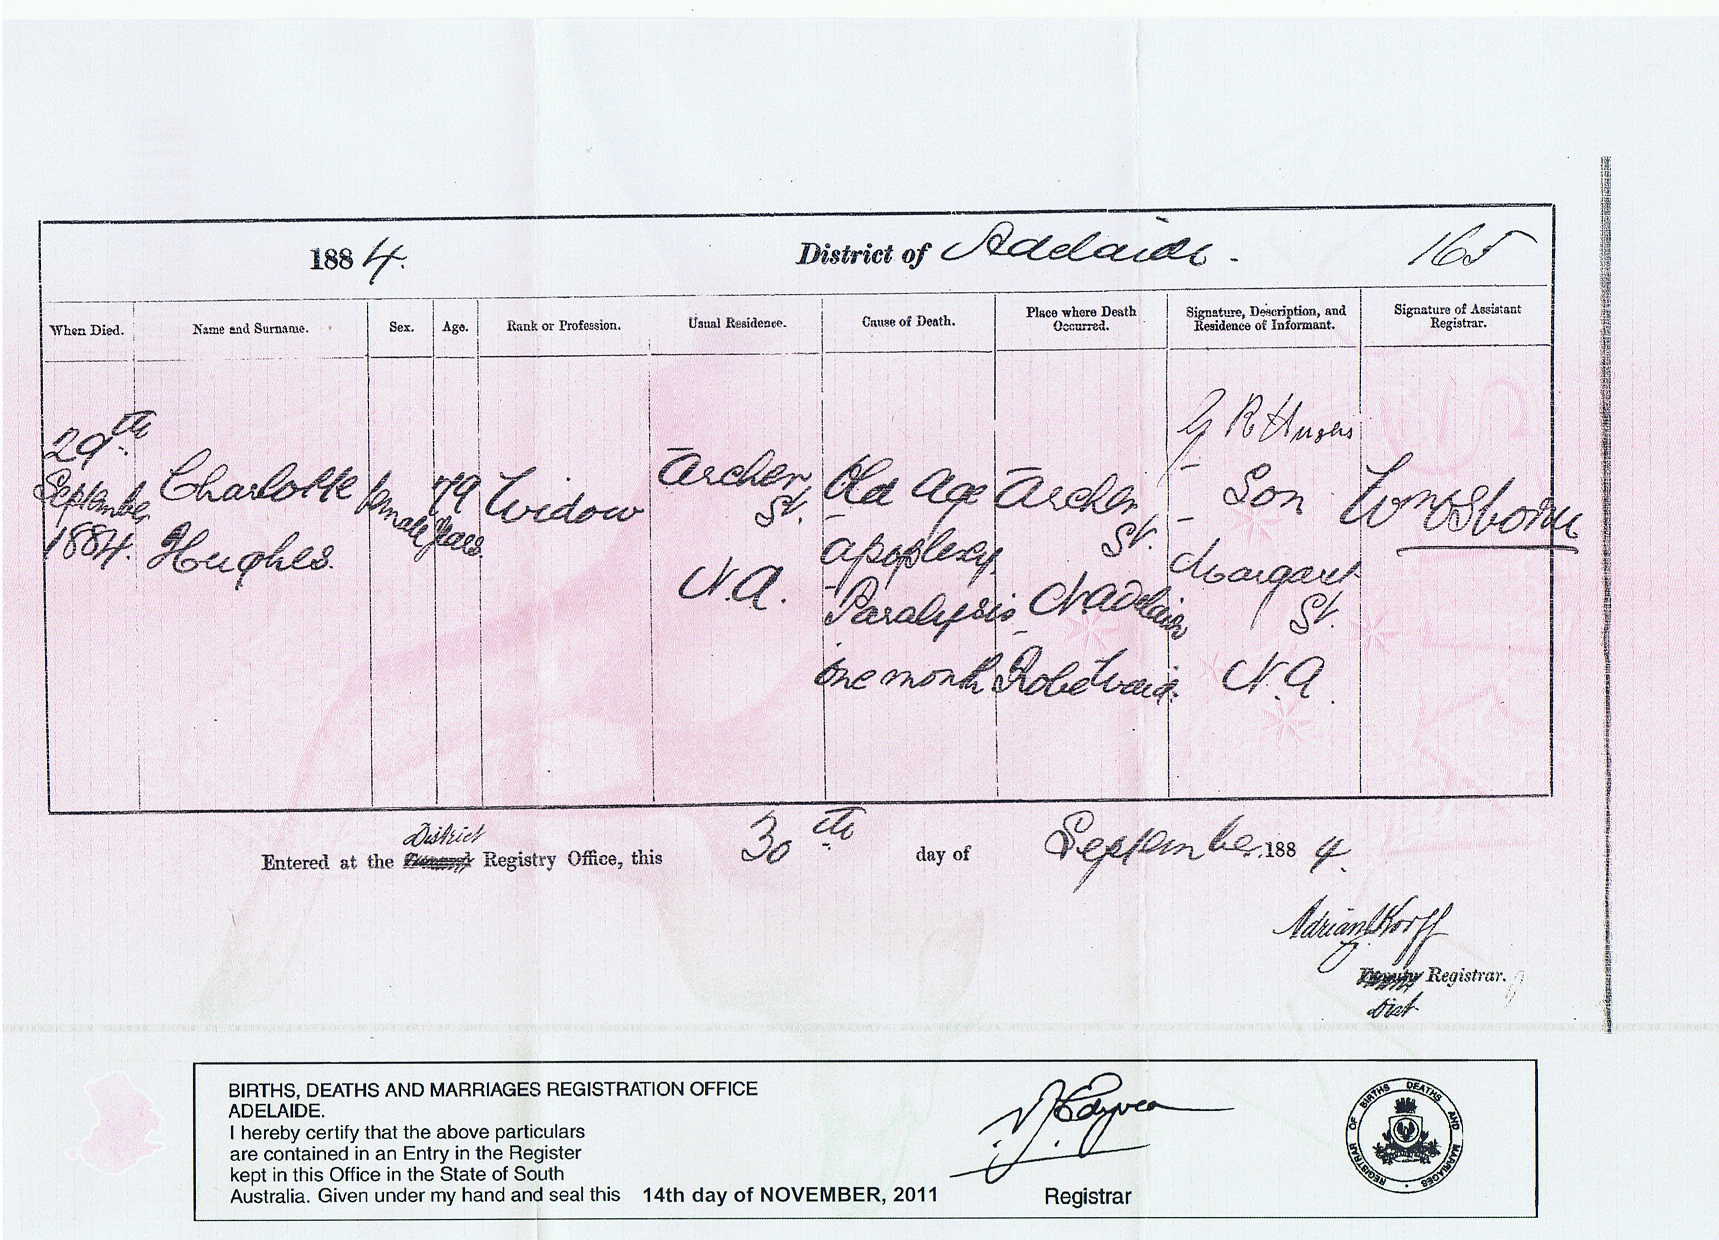 1884. District of Adelaide. 165
When Died. Name and Surname. Sex. Age. Rank or Profession. Usual Residence. Cause of Death. Place where Death Occurred. Signature, Description, and Residence of Informant. Signature of Assistant Registrar.
29th
September
1884.
Charlotte
Hughes.
female
79
years.
Widow
Archer
St.
N.A.
Old Age
apoplexy
Paralysis
one month
Archer
St.
N. Adelaide
Robe Ward.
G R Hughes
Son
Margaret
St.
N.A
Wm Osborne
District
Entered at the Registry Office, this 30th day of September 1884.
Adrian Korff
Registrar.
Dist
BIRTHS, DEATHS AND MARRIAGES REGISTRATION OFFICE
ADELAIDE.
I hereby certify that the above particulars
are contained in an Entry in the Register
kept in this Office in the State of South
Australia. Given under my hand and seal this 14th day of NOVEMBER, 2011
Registrar
REGISTRAR OF BIRTHS DEATHS AND MARRIAGES